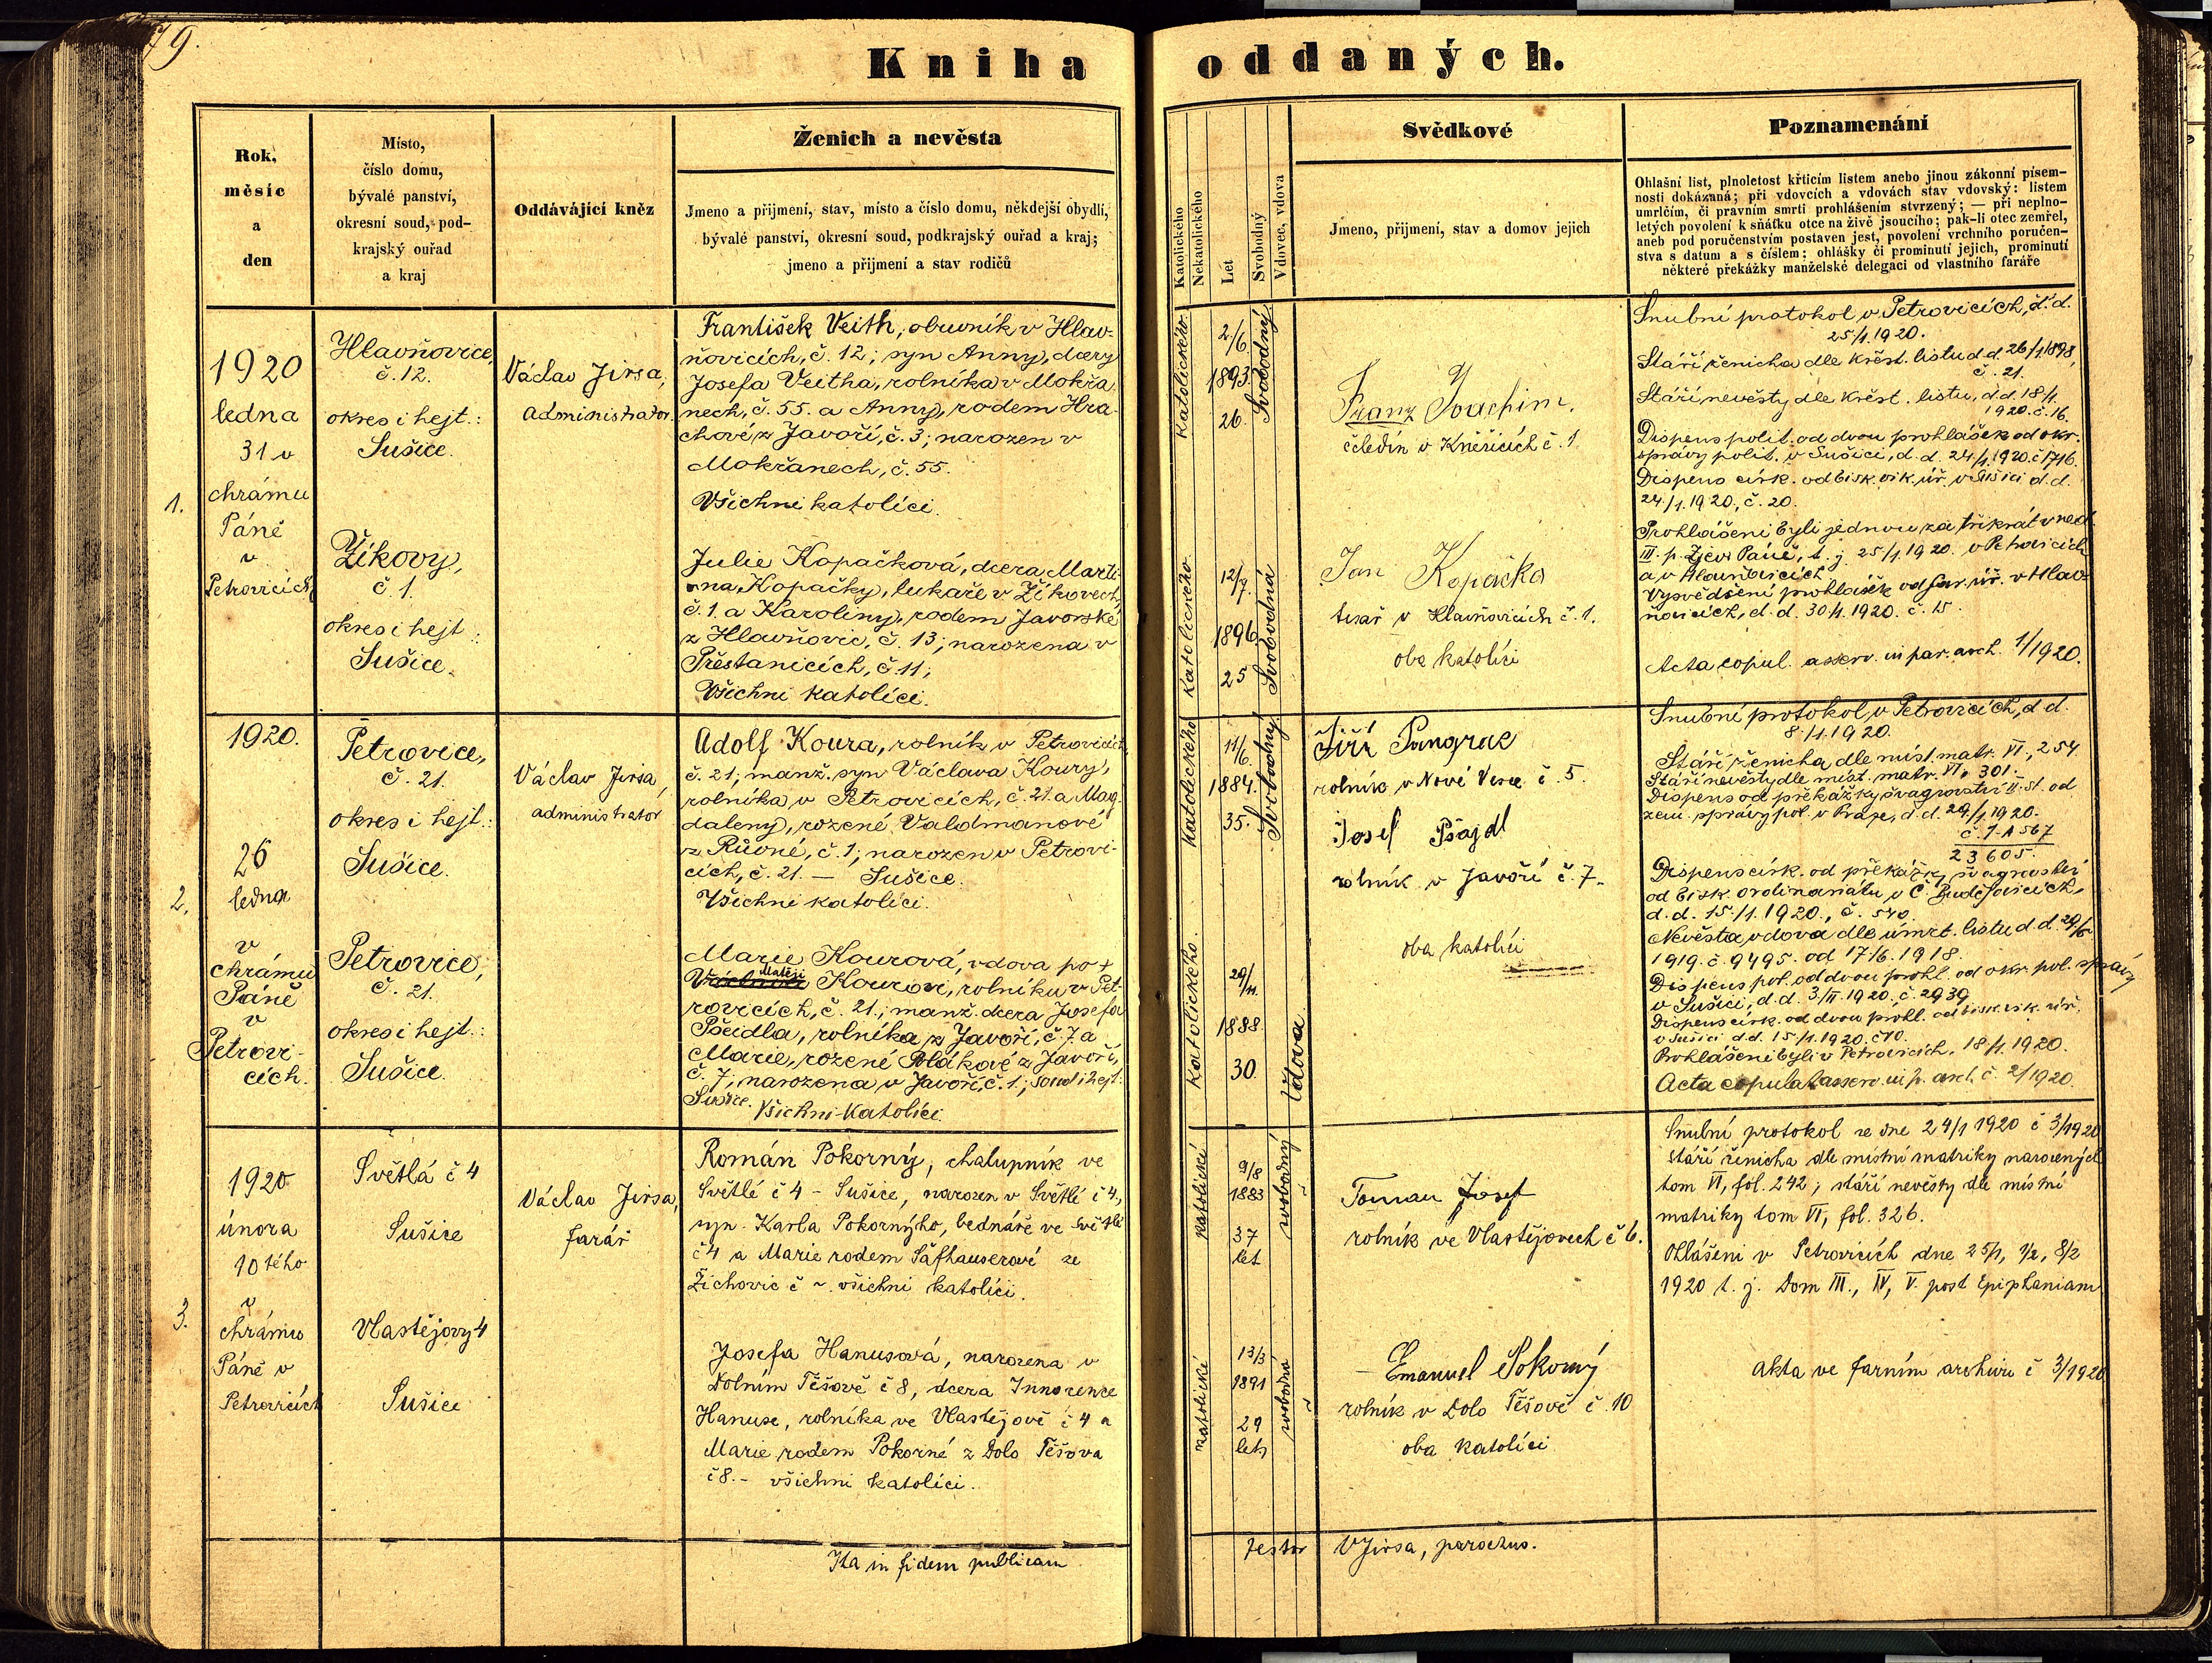 79.
Kniha oddaných.
Rok,
měsíc
a
den
Místo,
číslo domu,
bývalé panství,
okresní soud, pod-
krajský ouřad
a kraj
Oddávající kněz
Ženich a nevěsta
Jmeno a přijmení, stav, místo a číslo domu, někdejší obydlí,
bývalé panství, okresní soud, podkrajský ouřad a kraj;
jmeno a přijmení a stav rodičů
Katolického
Nekatolického
Let
Svobodný
Vdovec, vdova
Svědkové
Jmeno, přijmení, stav a domov jejich
Poznamenání
Ohlašní list, plnoletost křticím listem anebo jinou zákonní písem-
nosti dokázaná; při vdovcích a vdovách stav vdovský: listem
umrlčím, či právním smrti prohlášením stvrzený; — při neplno-
letých povolení k sňatku otce na živě jsoucího; pak-li otec zemřel,
aneb pod poručenstvím postaven jest, povolení vrchního poručen-
stva s datum a s číslem; ohlášky či prominutí jejich, prominutí
některé překážky manželské delegaci od vlastního faráře
1.
1920
ledna
31 v
chrámu
Páně
v
Petrovicích
Hlavňovice,
č. 12.
okres i hejt.:
Sušice.
Žikovy,
č. 1.
okres i hejt.:
Sušice.
Václav Jirsa,
administrator.
František Veith, obuvník v Hlav-
ňovicích, č. 12; syn Anny, dcery
Josefa Veitha, rolníka v Mokřa
nech, č. 55. a Anny, rodem Hra-
chové z Javoří, č. 3; narozen v
Mokřanech, č. 55.
Všichni katolíci.
Julie Kopačková, dcera Marti-
na Kopačky, lukaře v Žikovech,
č. 1 a Karoliny, rodem Javorské
z Hlavňovic, č. 13; narozena v
Přestanicích, č. 11;
Všichni katolíci.
Katolického.
2/6.
1893.
26.
Svobodný
Katolického.
12/7.
1896
25
Svobodná
Franz Joachim.
čeledín v Kněžicích č. 1.
Jan Kopačka
tesař v Hlavňovicích č. 1.
oba katolíci
Snubní protokol v Petrovicích, d. d.
25/1. 1920.
Stáří ženicha dle křest. listu d. d. 26/1. 1898,
č. 21.
Stáří nevěsty dle křest. listu, d. d. 18/1.
1920. č. 16.
Dispens polit. od dvou prohlášek od okr.
správy polit. v Sušici, d. d. 24/1. 1920. č 1716.
Dispens církv. od bisk. vik. úř. v Sušici d. d.
24/1. 1920, č. 20.
Prohlášeni byli jednou za třikrát v ned.
III. p. Zjev. Páně, t. j. 25/1. 1920. v Petrovicích
a v Hlavňovicích
Vysvědčení prohlášek od far. úř. v Hlav-
ňovicích, d. d. 30/1. 1920. č. 15.
Acta copul. asserv. in par. arch. 1/1920.
2.
1920.
26
ledna
v
chrámu
Páně
v
Petrovi-
cích.
Petrovice,
č. 21.
okres i hejt.:
Sušice.
Petrovice,
č. 21.
okres i hejt.:
Sušice.
Václav Jirsa,
administrator
Adolf Koura, rolník v Petrovicích
č. 21; manž. syn Václava Koury,
rolníka v Petrovicích, č. 21. a Mag-
daleny, rozené Valdmanové
z Růvné, č. 1; narozen v Petrovi-
cích, č. 21. — Sušice.
Všichni katolíci.
Marie Kourová, vdova po +
Matěji
Kourovi, rolníku v Pet-
rovicích, č. 21.; manž. dcera Josefa
Pšeidla, rolníka z Javoří, č. 7 a
Marie, rozené Polákové z Javoří,
č. 7; narozena v Javoří, č. 1; soud i hejt.:
Sušice. Všichni katolíci.
Katolického
11/6.
1884.
35.
Svobodný
Katolického.
29/11.
1888.
30.
Vdova
Jiří Pangrac
rolník v Nové Vsce č. 5.
Josef Pšajdl
rolník v Javoří č. 7.
oba katolíci
Snubní protokol v Petrovicích, d. d.
8./1. 1920.
Stáří ženicha dle míst. matr. VI., 254.
Stáří nevěsty dle míst. matr. VI, 301.
Dispens od překážky švagrovství II. st. od
zem. správy pol. v Praze, d. d. 29/1. 1920.
č. 7 A 567
23605.
Dispens církv. od překážky švagrovství
od bisk. ordinariátu v Č. Budějovicích,
d. d. 15./1. 1920., č. 540.
Nevěsta vdova dle úmrt. listu d. d. 29/6.
1919. č. 9495. od 17/6. 1918.
Dispens pol. od dvou prohl. od okr. pol. správy
v Sušici, d. d. 3/II. 1920. č. 2939
Dispens církv. od dvou prohl. od bisk. vik. úř.
v Sušici d. d. 15/1. 1920. č 10.
Prohlášeni byli v Petrovicích, 18/1. 1920.
Acta copulat. asserv. in p. arch. č. 2/1920.
3.
1920
února
10tého
v
chrámu
Páně v
Petrovicích
Světlá č 4
Sušice
Vlastějovy 4
Sušice
Václav Jirsa,
farář
Román Pokorný, chalupník ve
Světlé č 4 - Sušice, narozen v Světlé č 4,
syn Karla Pokorného, bednáře ve Světlé
č 4 a Marie rodem Šafhauserové ze
Žichovic č ~ všichni katolíci.
Josefa Hanusová, narozena v
Dolním Těšově č 8, dcera Innocence
Hanuse, rolníka ve Vlastějově č 4 a
Marie rodem Pokorné z Dolo Těšova
č 8. - všichni katolíci.
katolické
9/8
1883
37
let
svobodný
katolické
13/3
1891
29
let
svobodná
Toman Josef
rolník ve Vlastějovech č 6.
Emanuel Pokorný
rolník v Dolo Těšově č 10
oba katolíci
Snubní protokol ze dne 24/1 1920 č 3/1920
stáří ženicha dle místní matriky narozených
tom VI, fol. 242; stáří nevěsty dle místní
matriky tom VI, fol. 326.
Ohlášeni v Petrovicích dne 25/1, 1/2, 8/2
1920 t. j. Dom III., IV, V. post Epiphaniam
akta ve farním archivu č 3/1920
Ita in fidem publicam
testor VJirsa, parochus.